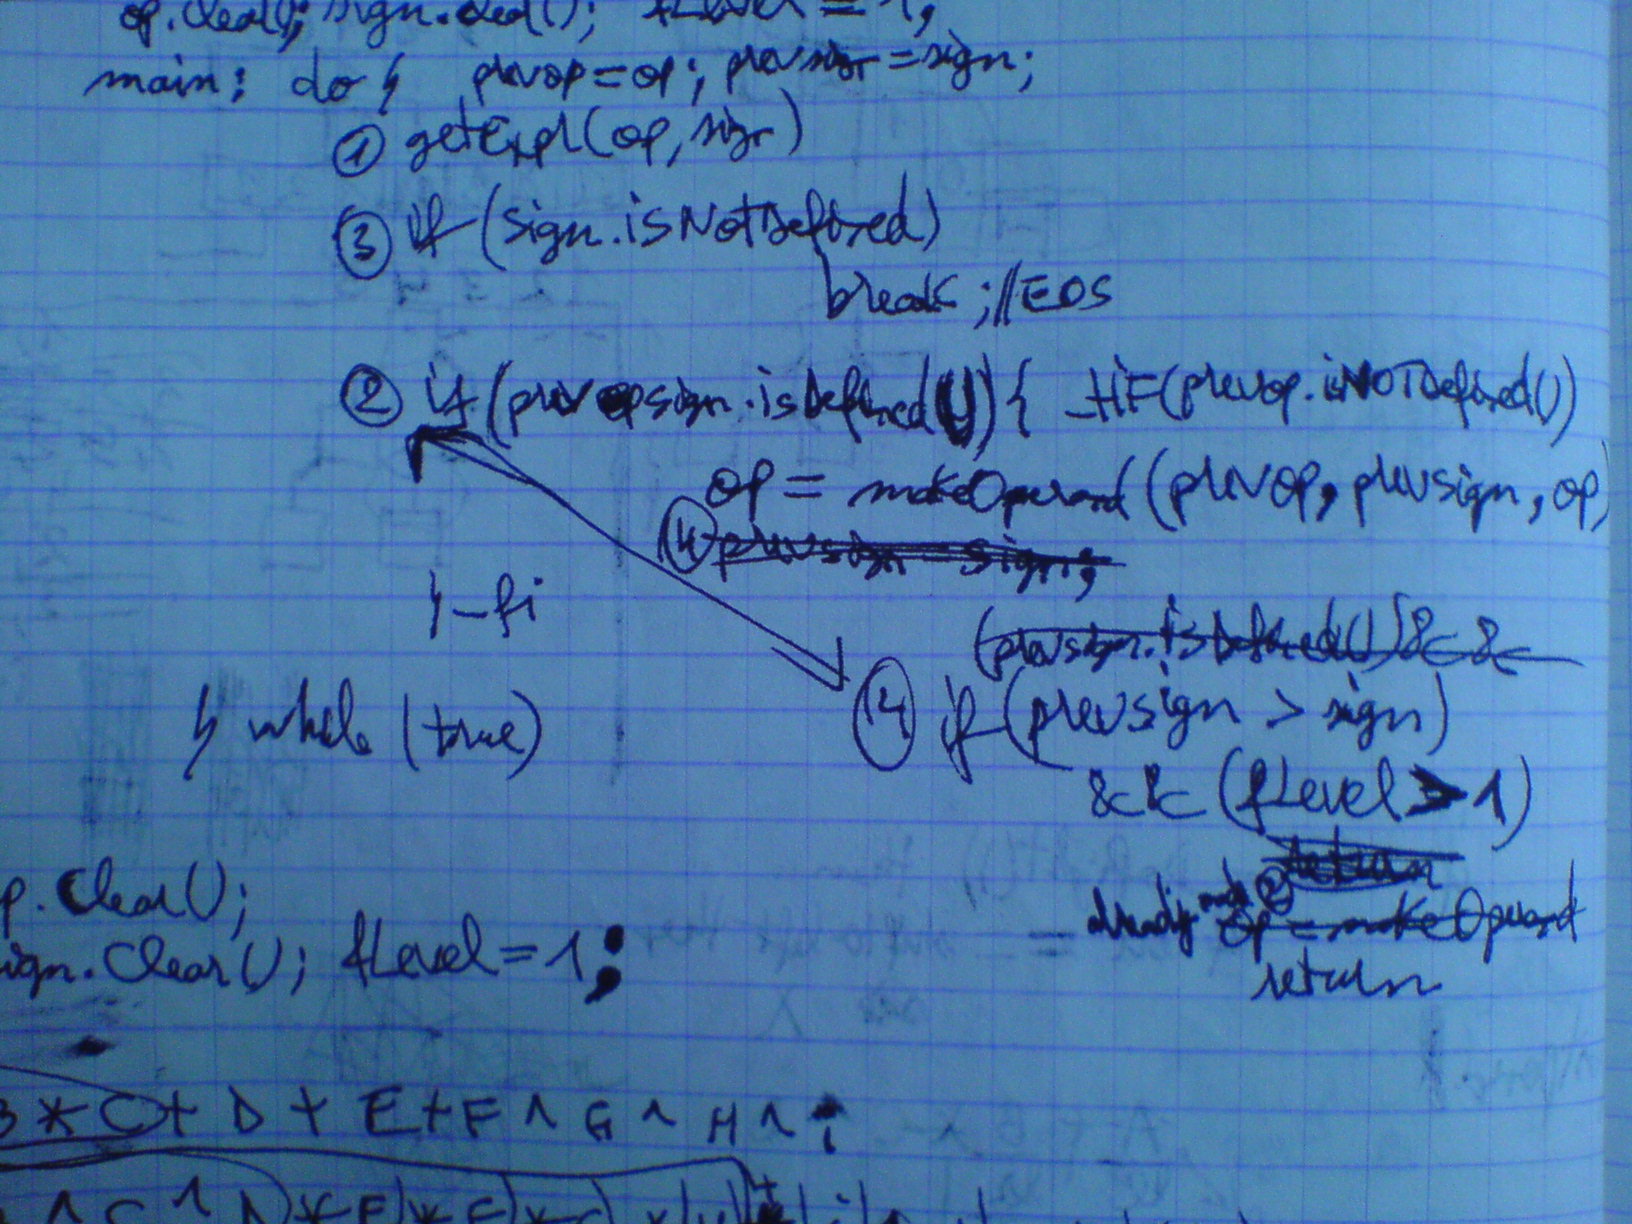 op.Clear(); sign.Clear(); fLevel = 1;
main: do { prevop = op; prevsign = sign;
① getExpl(op, sign)
③ if (sign.isNotDefined)
break; //EOS
② if (prevopsign.isDefined()) { _HiF(prevop.isNOTDefined())
op = makeOperand (prevop, prevsign, op)
④ prevsign = sign;
} _fi
(prevsign.isDefined()) &&
} while (true)
④ if (prevsign > sign)
&& (fLevel > 1)
return
already made ②
op = makeOperand
return
p.Clear();
ign.Clear(); fLevel = 1;
B * C + D + E + F ^ G ^ H ^ i
^ C ^ D) * E) * F) *